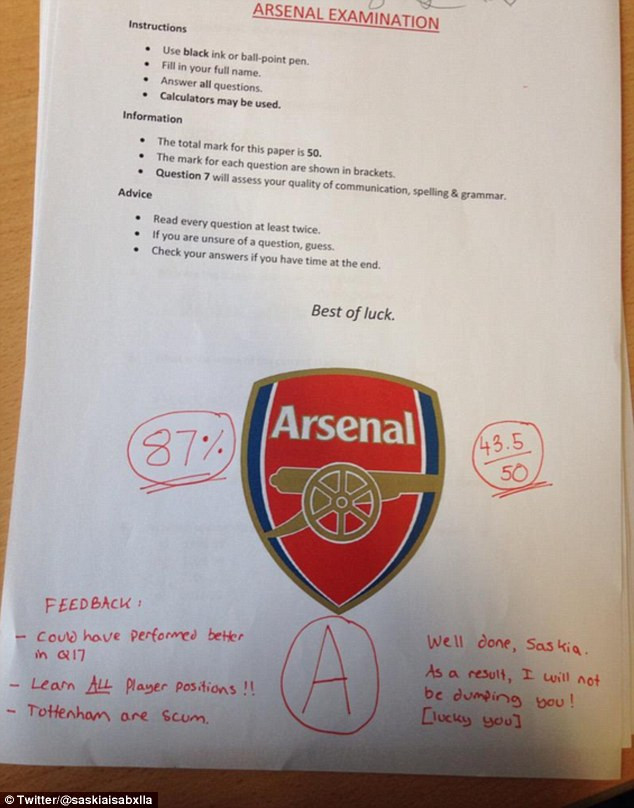 ARSENAL EXAMINATION
Instructions
• Use black ink or ball-point pen.
• Fill in your full name.
• Answer all questions.
• Calculators may be used.
Information
• The total mark for this paper is 50.
• The mark for each question are shown in brackets.
• Question 7 will assess your quality of communication, spelling & grammar.
Advice
• Read every question at least twice.
• If you are unsure of a question, guess.
• Check your answers if you have time at the end.
Best of luck.
Arsenal
87%
43.5
50
FEEDBACK:
- Could have performed better
in Q17
- Learn ALL Player Positions!!
- Tottenham are scum.
A
Well done, Saskia.
As a result, I will not
be dumping you!
[lucky you]
© Twitter/@saskiaisabxlla